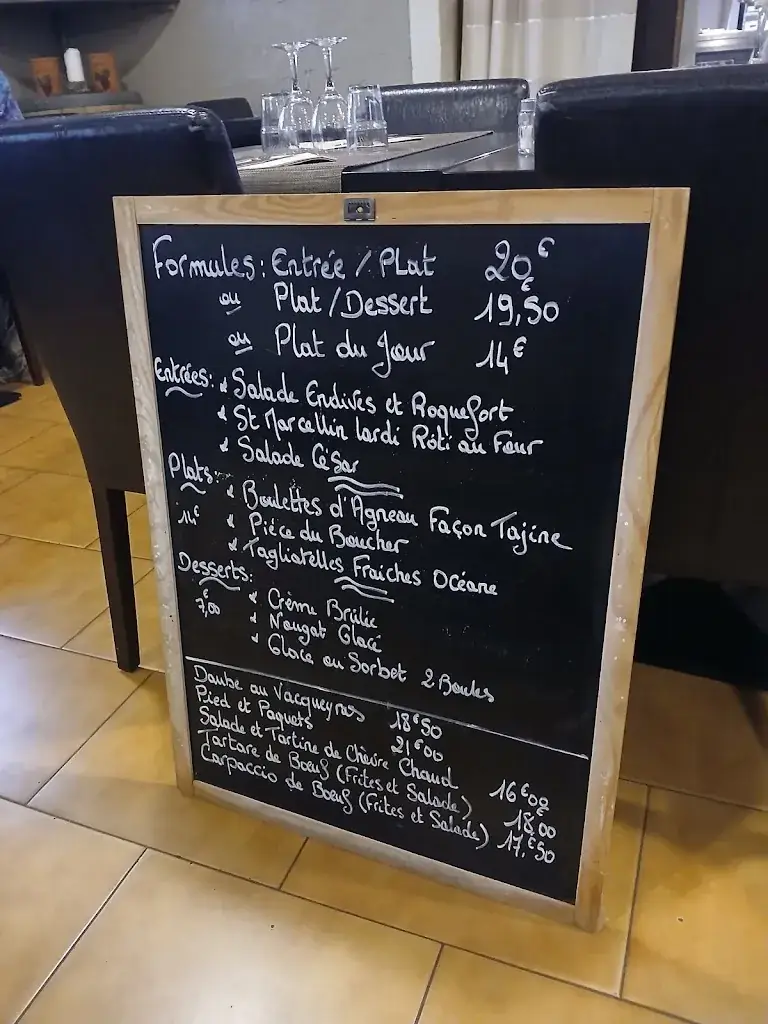 Formules: Entrée / Plat 20€
ou Plat / Dessert 19,€50
ou Plat du Jour 14€
Entrées: * Salade Endives et Roquefort
* St Marcellin lardi Rôti au Four
* Salade César
Plats: * Boulettes d'Agneau Façon Tajine
14€ * Piéce du Boucher
* Tagliatelles Fraiches Océane
Desserts: * Crème Brûlée
7,€00 * Nougat Glacé
* Glace ou Sorbet 2 Boules
Daube au Vacqueyras 18€50
Pied et Paquets 21€00
Salade et Tartine de Chèvre Chaud 16€00
Tartare de Boeuf (Frites et Salade) 18€00
Carpaccio de Boeuf (Frites et Salade) 17,€50